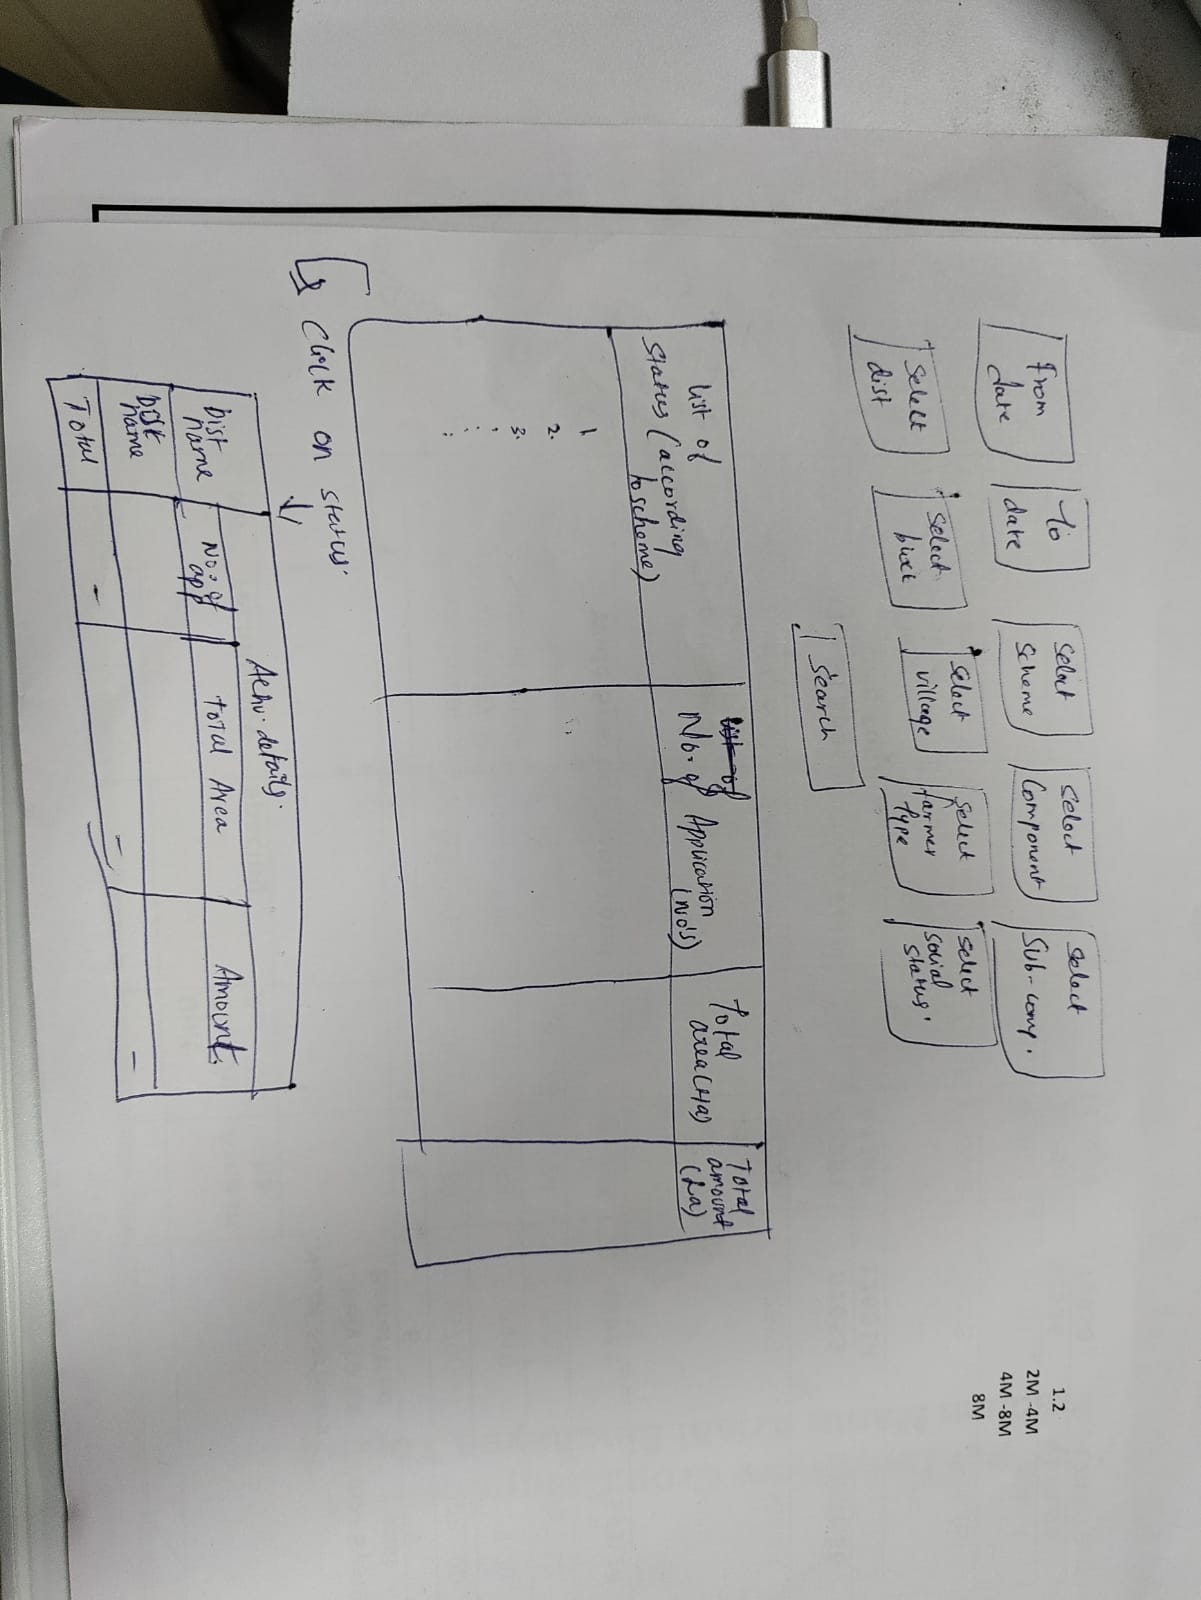 From
date
To
date
Select
Scheme
Select
Component
Select
Sub-comp.
1.2
2M -4M
4M -8M
8M
Select
dist
Select
block
Select
village
Select
farmer
type
Select
social
status.
Search
List of
Status (according
to scheme)
List of
No. of Application
(No's)
Total
area (Ha)
Total
amount
(La)
1
2.
3.
Click on status.
Dist
name
Achv. details.
No. of
app
Total Area
Amount.
Dist
name
Total